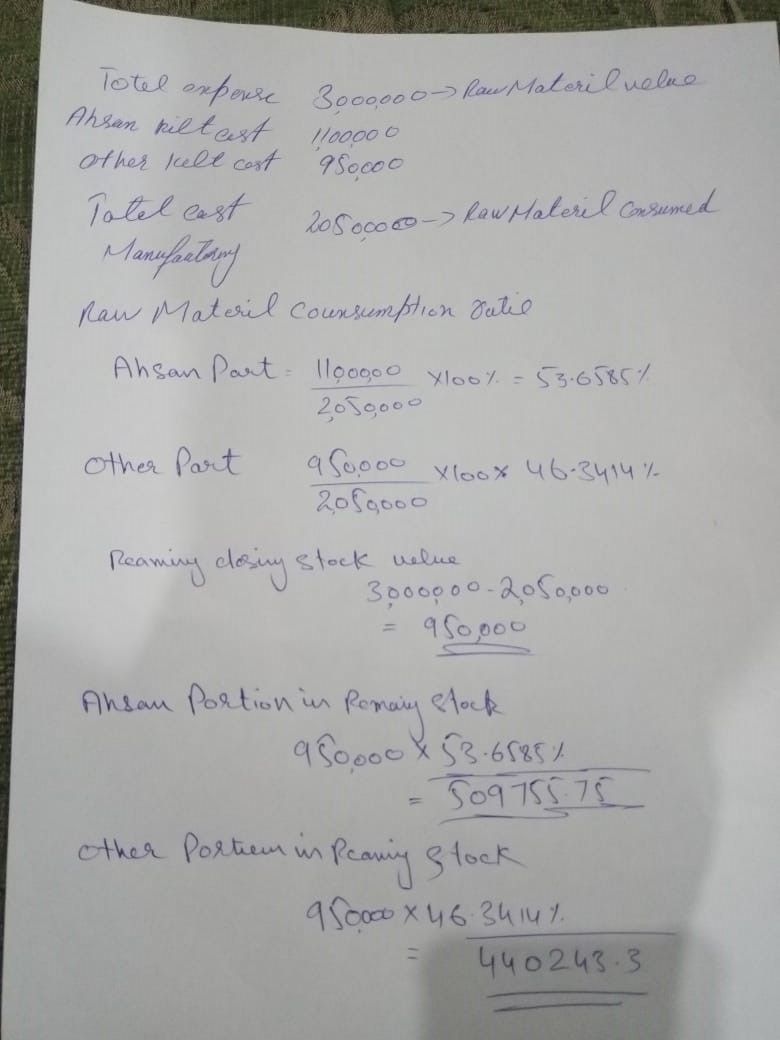 Total expense 3,000,000 → Raw Materil value
Ahsan kilt cost 1,100,000
other kelt cost 950,000
Total cost 2050,000 → Raw Materil Consumed
Manufactoring
Raw Materil Counsumption ratio
Ahsan Part = 1100,000 / 2,050,000 × 100% = 53.6585%
Other Part 950,000 / 2,050,000 × 100% 46.3414%
Reaming closing stock value
3,000,000 - 2,050,000
= 950,000
Ahsan Portion in Remaig Stock
950,000 × 53.6585%
= 509755.75
other Portion in Reamig Stock
950,000 × 46.3414%
= 440243.3